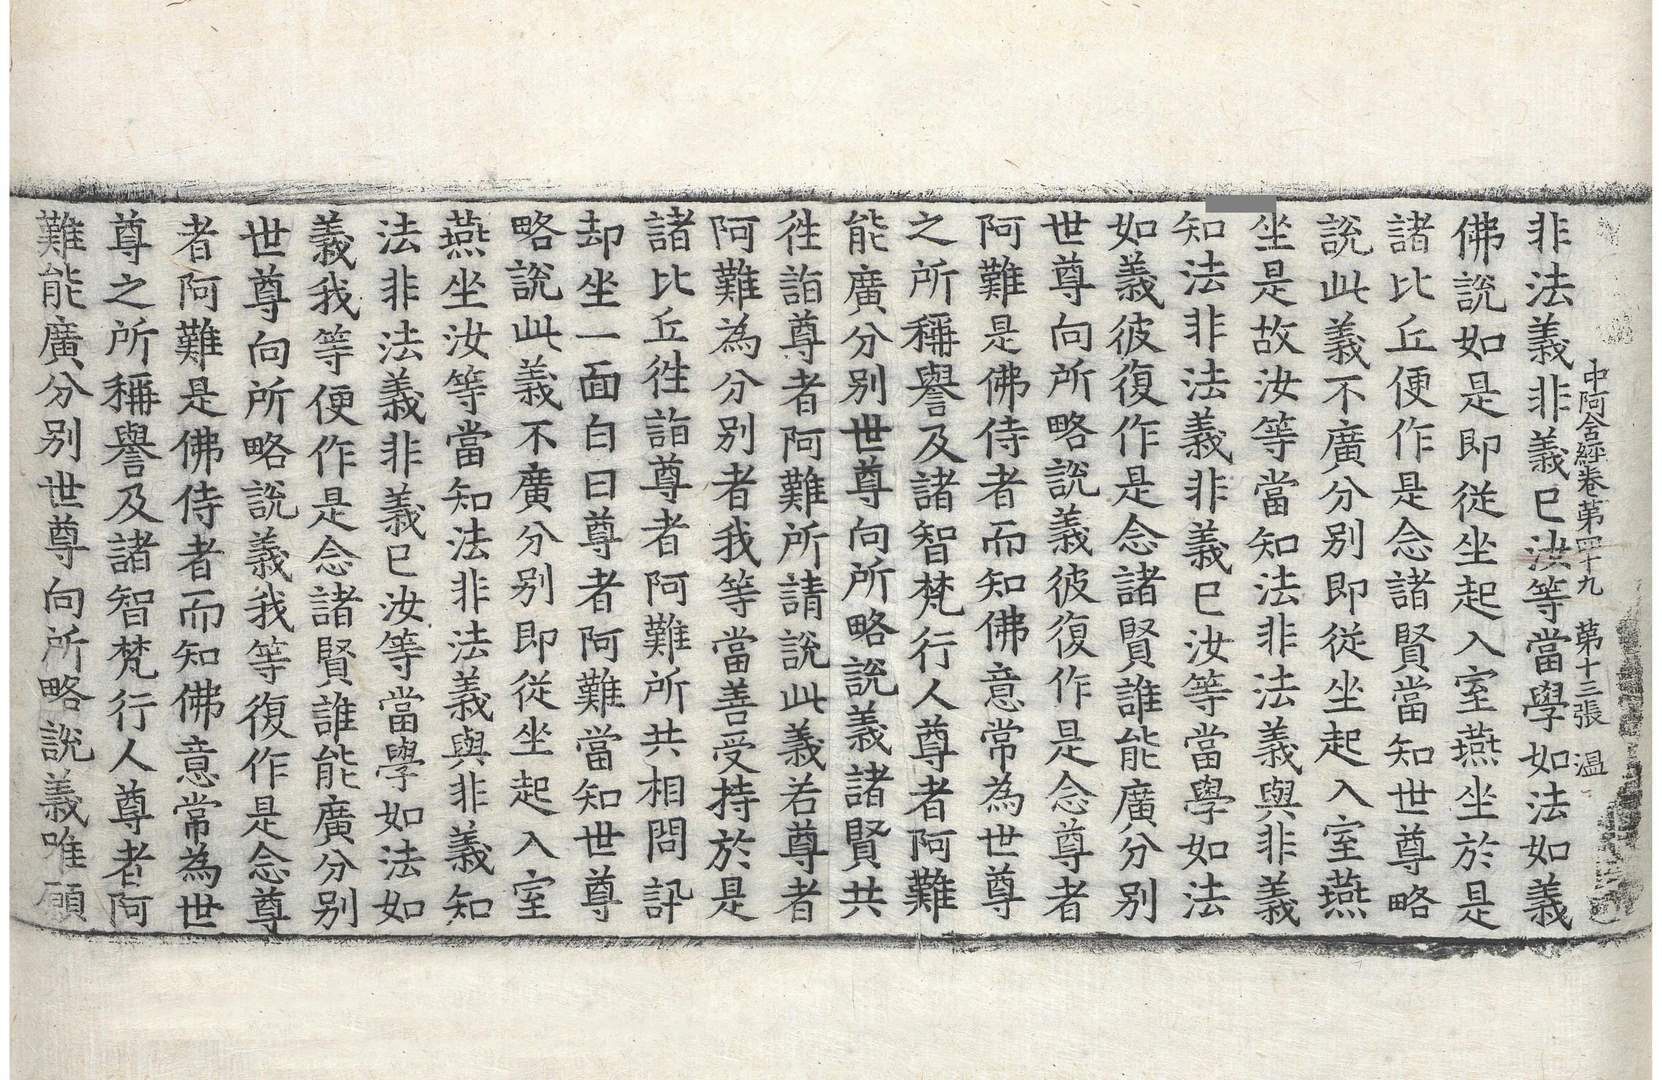 中阿含經卷第四十九 第十三張 温
非法義非義已汝等當學如法如義
佛說如是即從坐起入室燕坐於是
諸比丘便作是念諸賢當知世尊略
說此義不廣分別即從坐起入室燕
坐是故汝等當知法非法義與非義
知法非法義非義已汝等當學如法
如義彼復作是念諸賢誰能廣分別
世尊向所略說義彼復作是念尊者
阿難是佛侍者而知佛意常為世尊
之所稱譽及諸智梵行人尊者阿難
能廣分別世尊向所略說義諸賢共
往詣尊者阿難所請說此義若尊者
阿難為分別者我等當善受持於是
諸比丘往詣尊者阿難所共相問訊
却坐一面白曰尊者阿難當知世尊
略說此義不廣分別即從坐起入室
燕坐汝等當知法非法義與非義知
法非法義非義已汝等當學如法如
義我等便作是念諸賢誰能廣分別
世尊向所略說義我等復作是念尊
者阿難是佛侍者而知佛意常為世
尊之所稱譽及諸智梵行人尊者阿
難能廣分別世尊向所略說義唯願